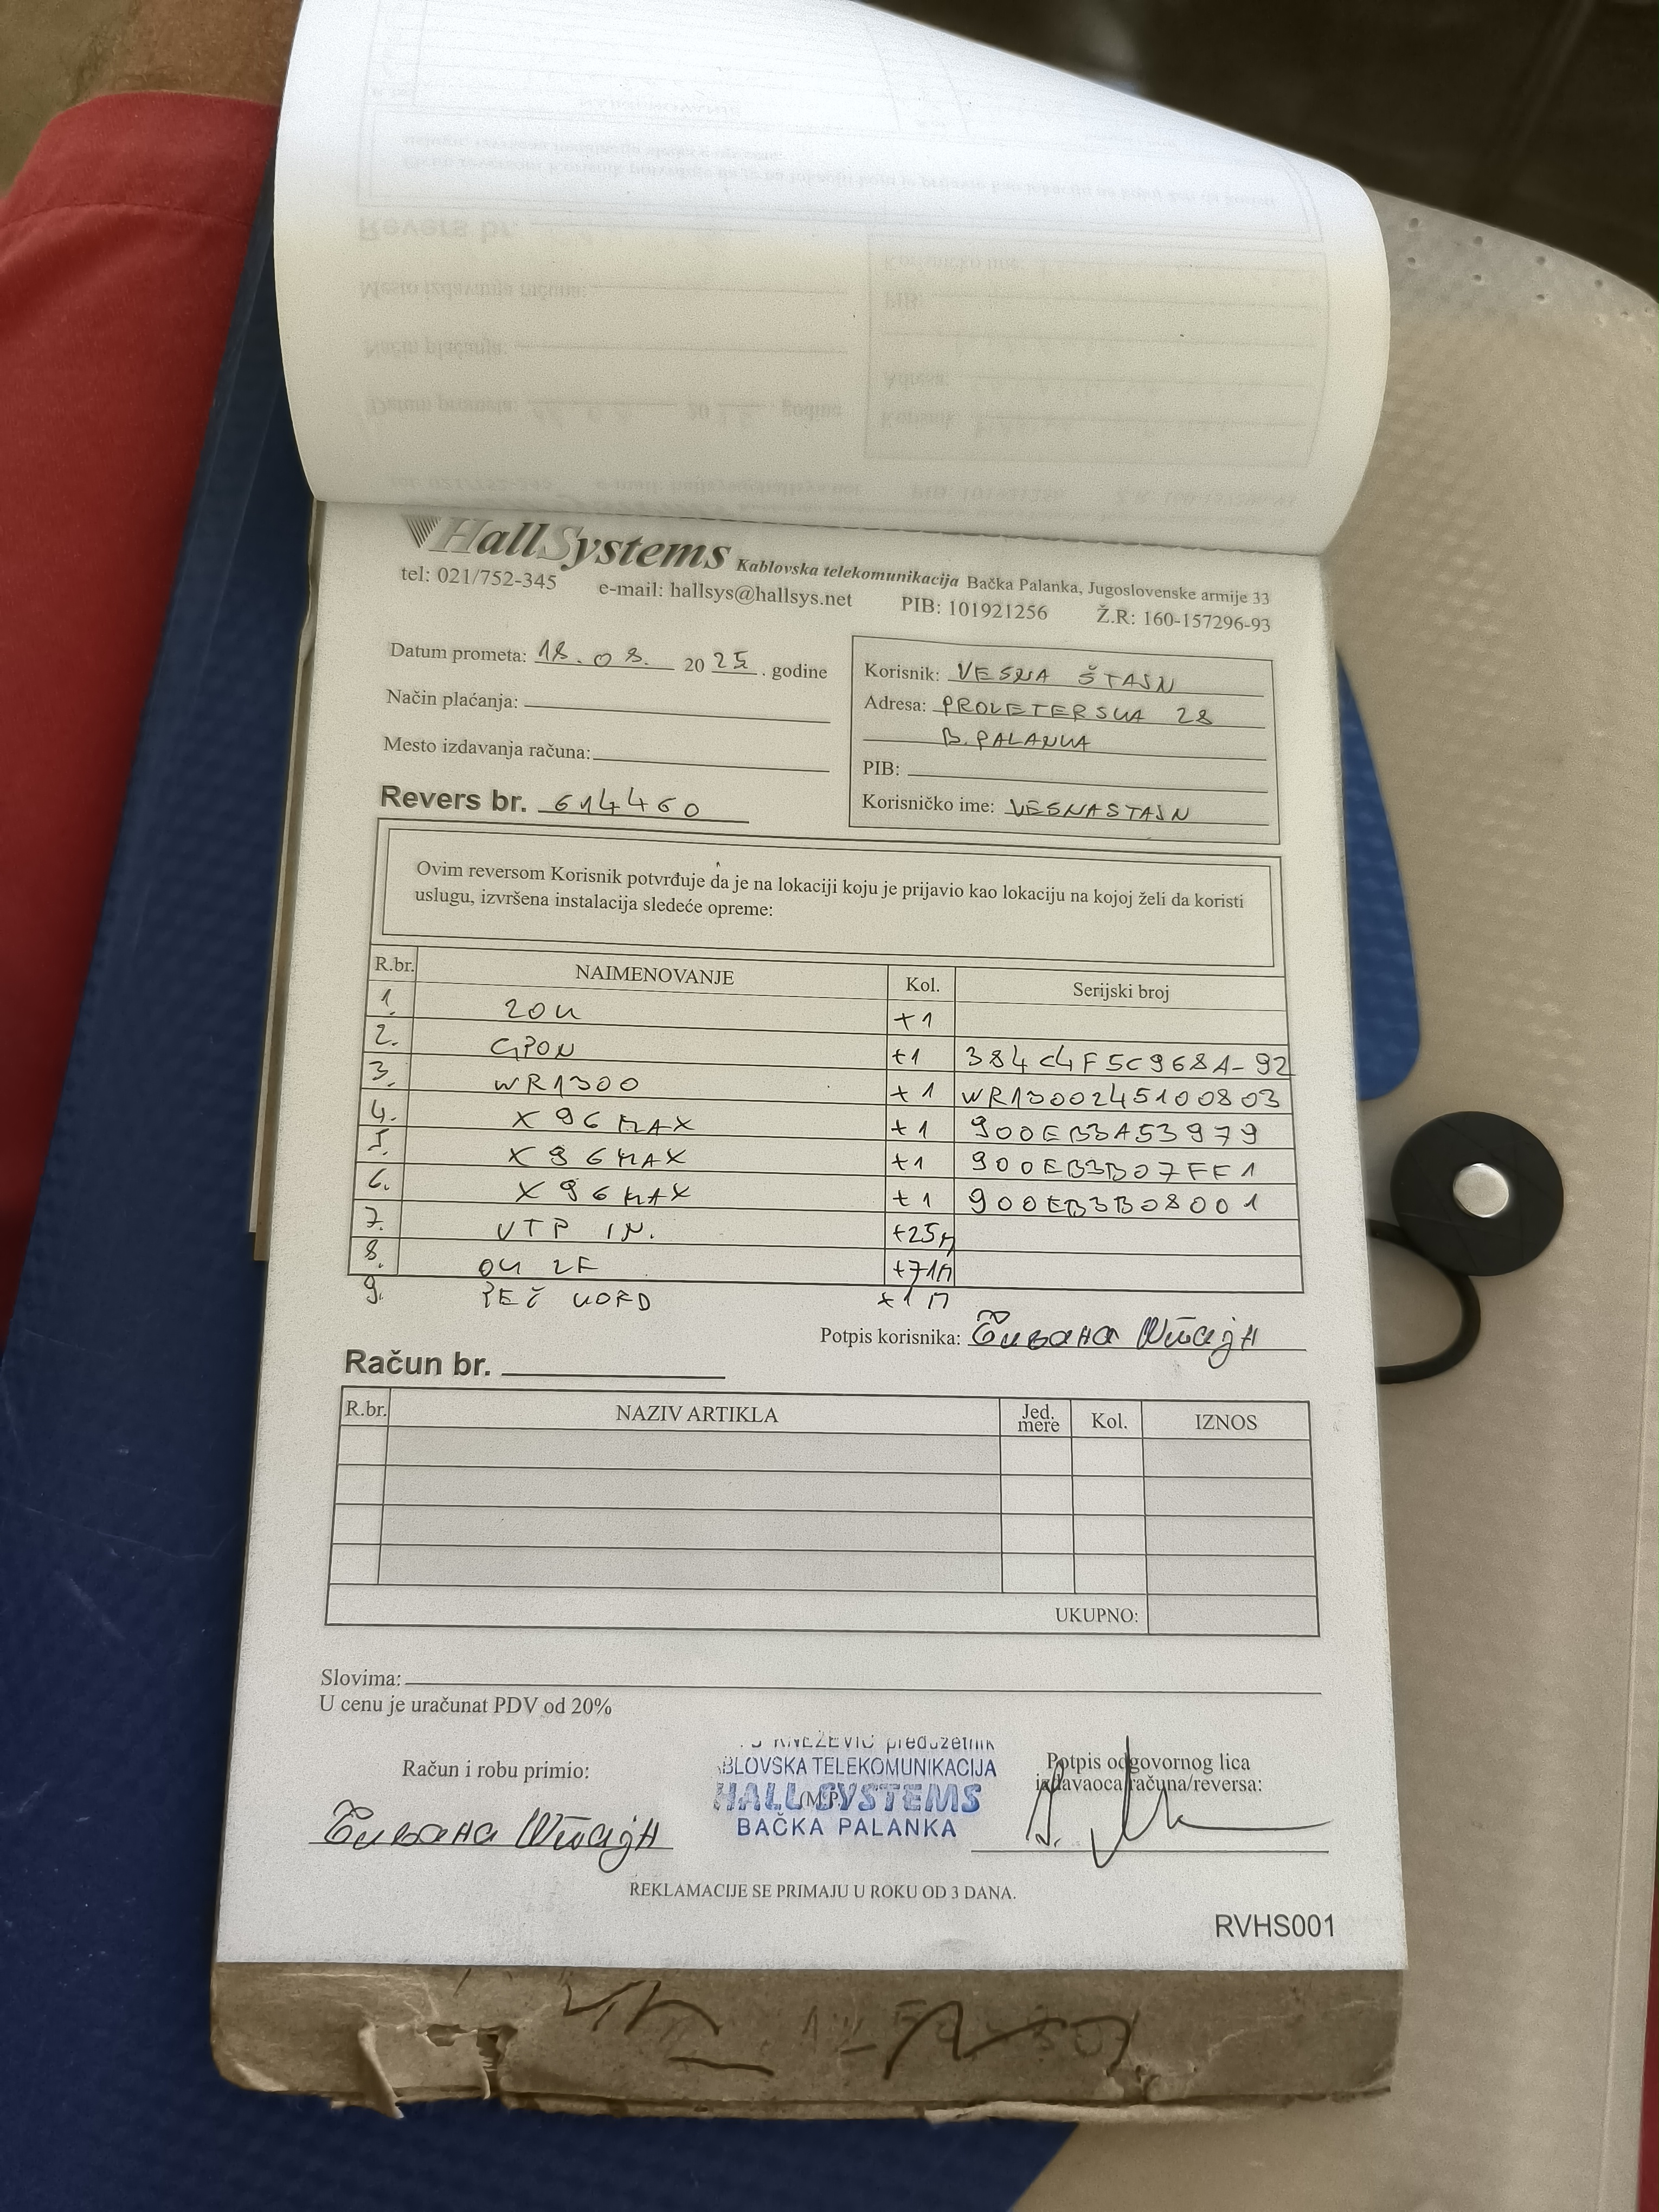 HallSystems Kablovska telekomunikacija Bačka Palanka, Jugoslovenske armije 33
tel: 021/752-345 e-mail: hallsys@hallsys.net PIB: 101921256 Ž.R: 160-157296-93
Datum prometa: 18.08. 20 25 . godine
Način plaćanja:
Mesto izdavanja računa:
Revers br. 614460
Korisnik: VESNA ŠTAJN
Adresa: PROLETERSKA 28
B. PALANKA
PIB:
Korisničko ime: VESNASTAJN
Ovim reversom Korisnik potvrđuje da je na lokaciji koju je prijavio kao lokaciju na kojoj želi da koristi
uslugu, izvršena instalacija sledeće opreme:
R.br. NAIMENOVANJE Kol. Serijski broj
1. ZOK +1
2. GPON +1 384C4F5C968A-92
3. WR1300 +1 WR1300245100803
4. X96MAX +1 900EB3A53979
5. X96MAX +1 900EB3B07FF1
6. X96MAX +1 900EB3B08001
7. UTP IN. +25M
8. OK 2F +71M
9. PEČ KORD +1M
Potpis korisnika:
Račun br.
R.br. NAZIV ARTIKLA Jed. mere Kol. IZNOS
UKUPNO:
Slovima:
U cenu je uračunat PDV od 20%
Račun i robu primio:
KNEŽEVIĆ preduzetnik
BLOVSKA TELEKOMUNIKACIJA
HALL SYSTEMS
(M.P.)
BAČKA PALANKA
Potpis odgovornog lica
izdavaoca računa/reversa:
REKLAMACIJE SE PRIMAJU U ROKU OD 3 DANA.
RVHS001